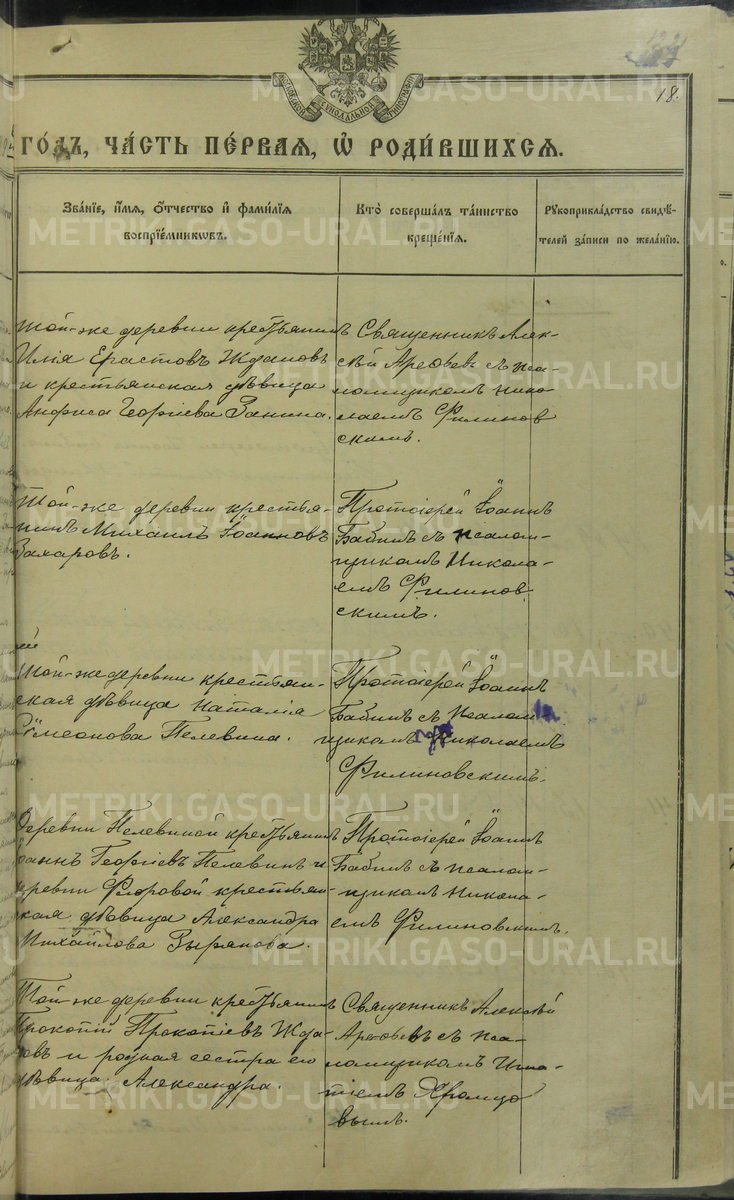 18.
МОСКОВСКОЙ СѴНОДАЛЬНОЙ ТИПОГРАФІИ
ГО́ДЪ, ЧА́СТЬ ПЕ́РВАЯ, Ѡ҆ РОДИ́ВШИХСѦ.
Зва́нїе, и҆́мѧ, ѻ҆́тчество и҆ фами́лїѧ
воспрїе́мникѡвъ.
Кто̀ соверша́лъ та́инство
креще́нїѧ.
Рꙋкоприкла́дство свидѣ́-
телей за́писи по жела́нїю.
той-же деревни крестьянинъ
Илія Ерастовъ Ждановъ
и крестьянская дѣвица
Анфиса Георгіева Ранина.
Священникъ Алек-
сѣй Арефьевъ съ пса-
ломщикомъ Нико-
лаемъ Филинов
скимъ.
Той-же деревни крестья-
нинъ Михаилъ Іоанновъ
Захаровъ.
Протоіерей Іоаннъ
Бабинъ съ псалом-
щикомъ Никола-
емъ Филинов
скимъ.
Той-же деревни крестьян-
ская дѣвица Наталія
Сѵмеонова Пелевина.
Протоіерей Іоаннъ
Бабинъ съ псалом
щикомъ Николаемъ
Филиновскимъ.
Деревни Пелевиной крестьянинъ
Іоаннъ Георгіевъ Пелевинъ и
деревни Фроровой крестьян-
ская дѣвица Александра
Михайлова Зырянова.
Протоіерей Іоаннъ
Бабинъ съ псалом-
щикомъ Никола-
емъ Филиновскимъ.
Той-же деревни крестьянинъ
Прокопій Прокопіевъ Жда-
новъ и родная сестра его
дѣвица Александра.
Священникъ Алексѣй
Арефьевъ съ пса-
ломщикомъ Игна-
тіемъ Хромцо
вымъ.
METRIKI.GASO-URAL.RU